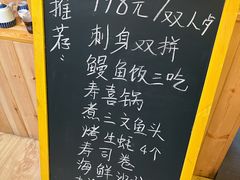 推荐
198元/双人卢
刺身双拼
鳗鱼饭三吃
寿喜锅
煮三文鱼头
烤生蚝4个
寿司卷
海鲜沙